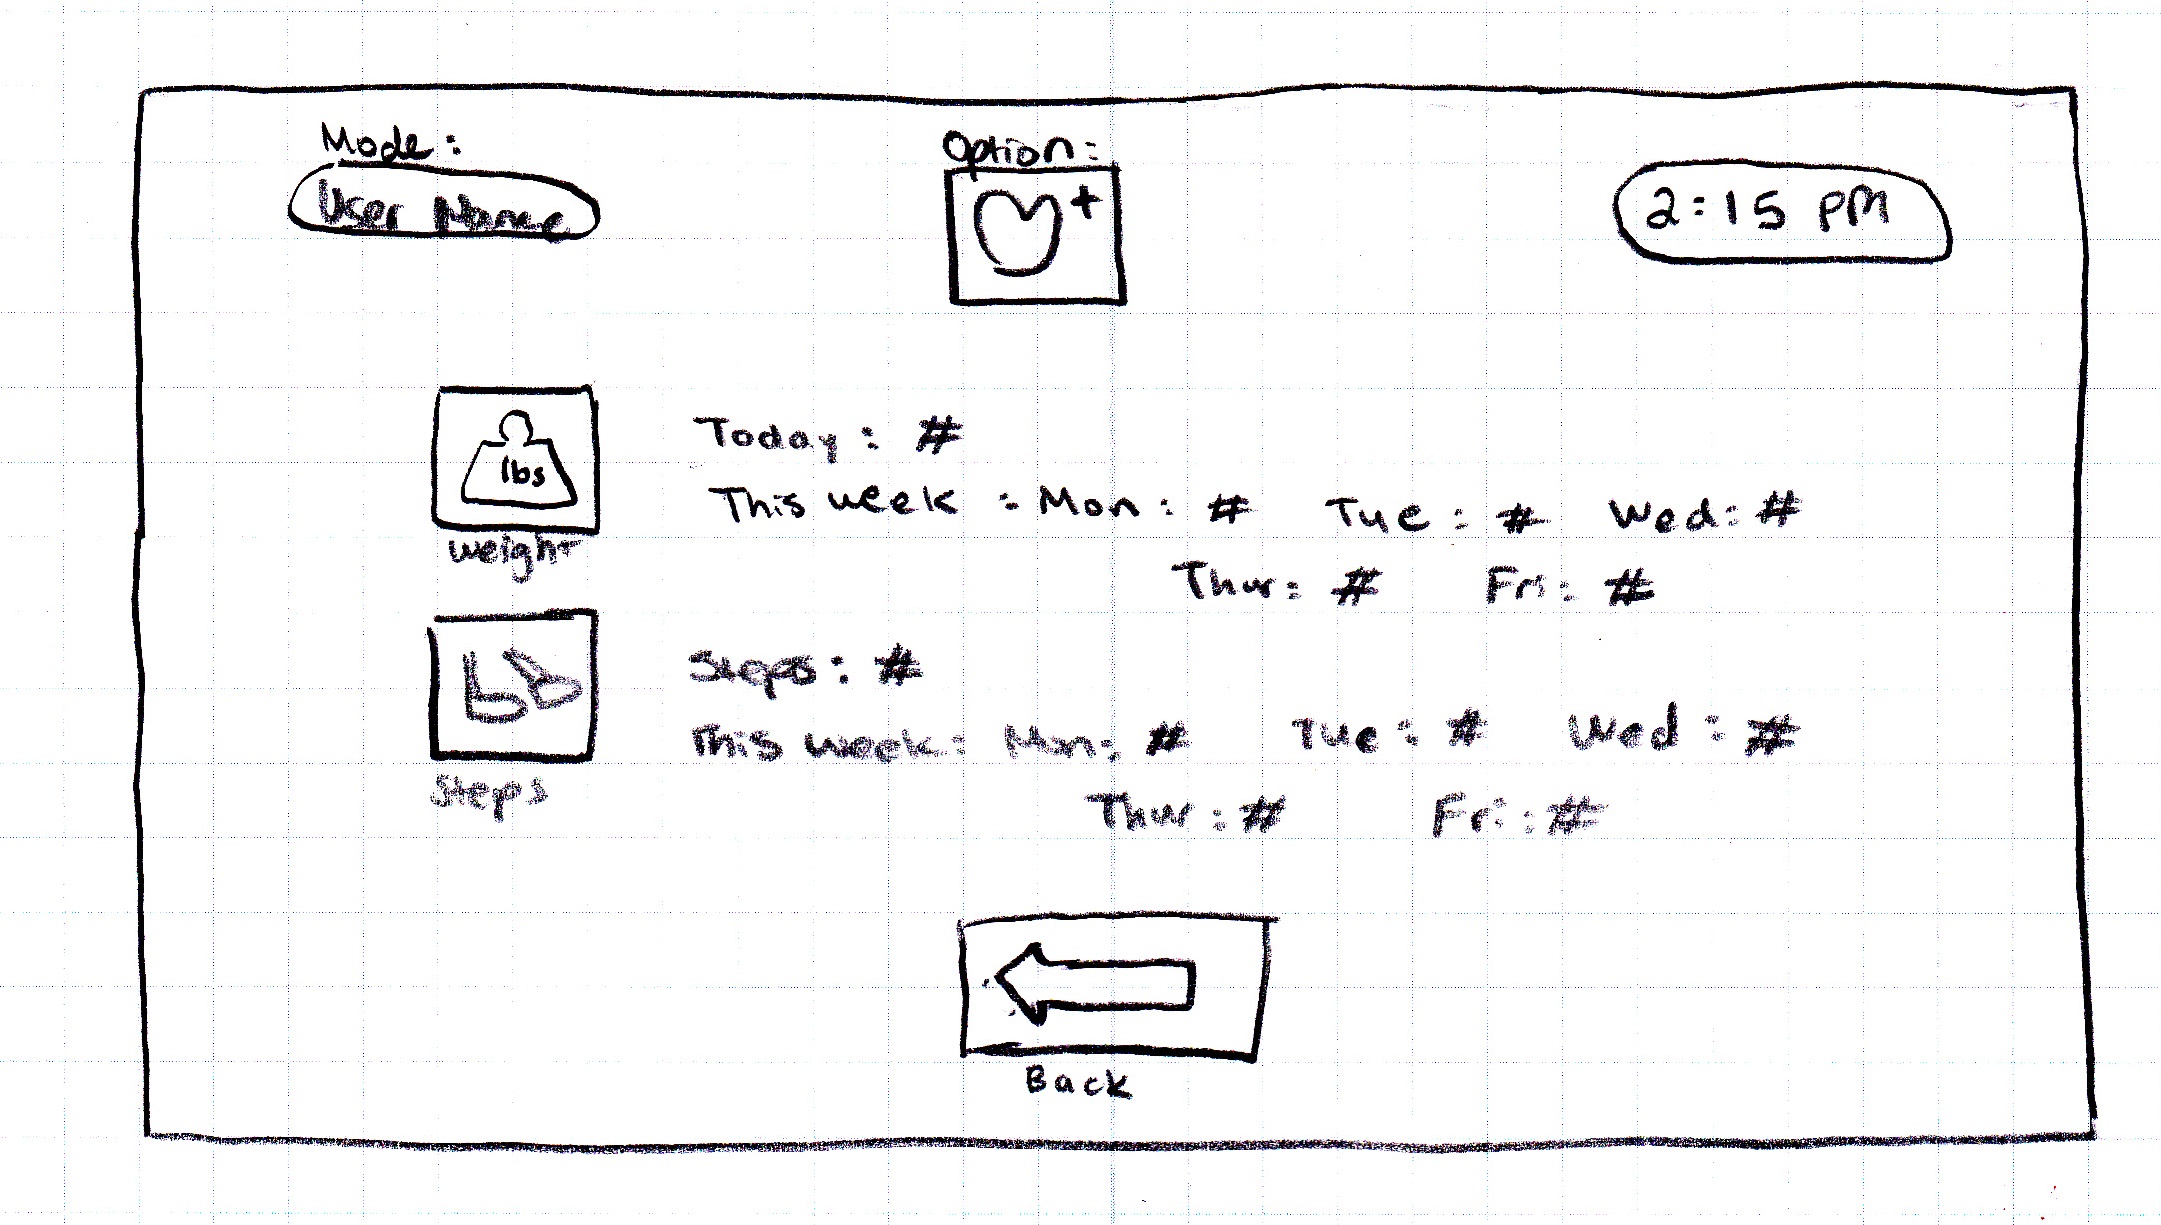 Mode:
User Name
Option:
2:15 PM
lbs
weight
Today: #
This week: Mon: # Tue: # Wed: #
Thur: # Fri: #
Steps
Steps: #
This week: Mon: # Tue: # Wed: #
Thur: # Fri: #
Back